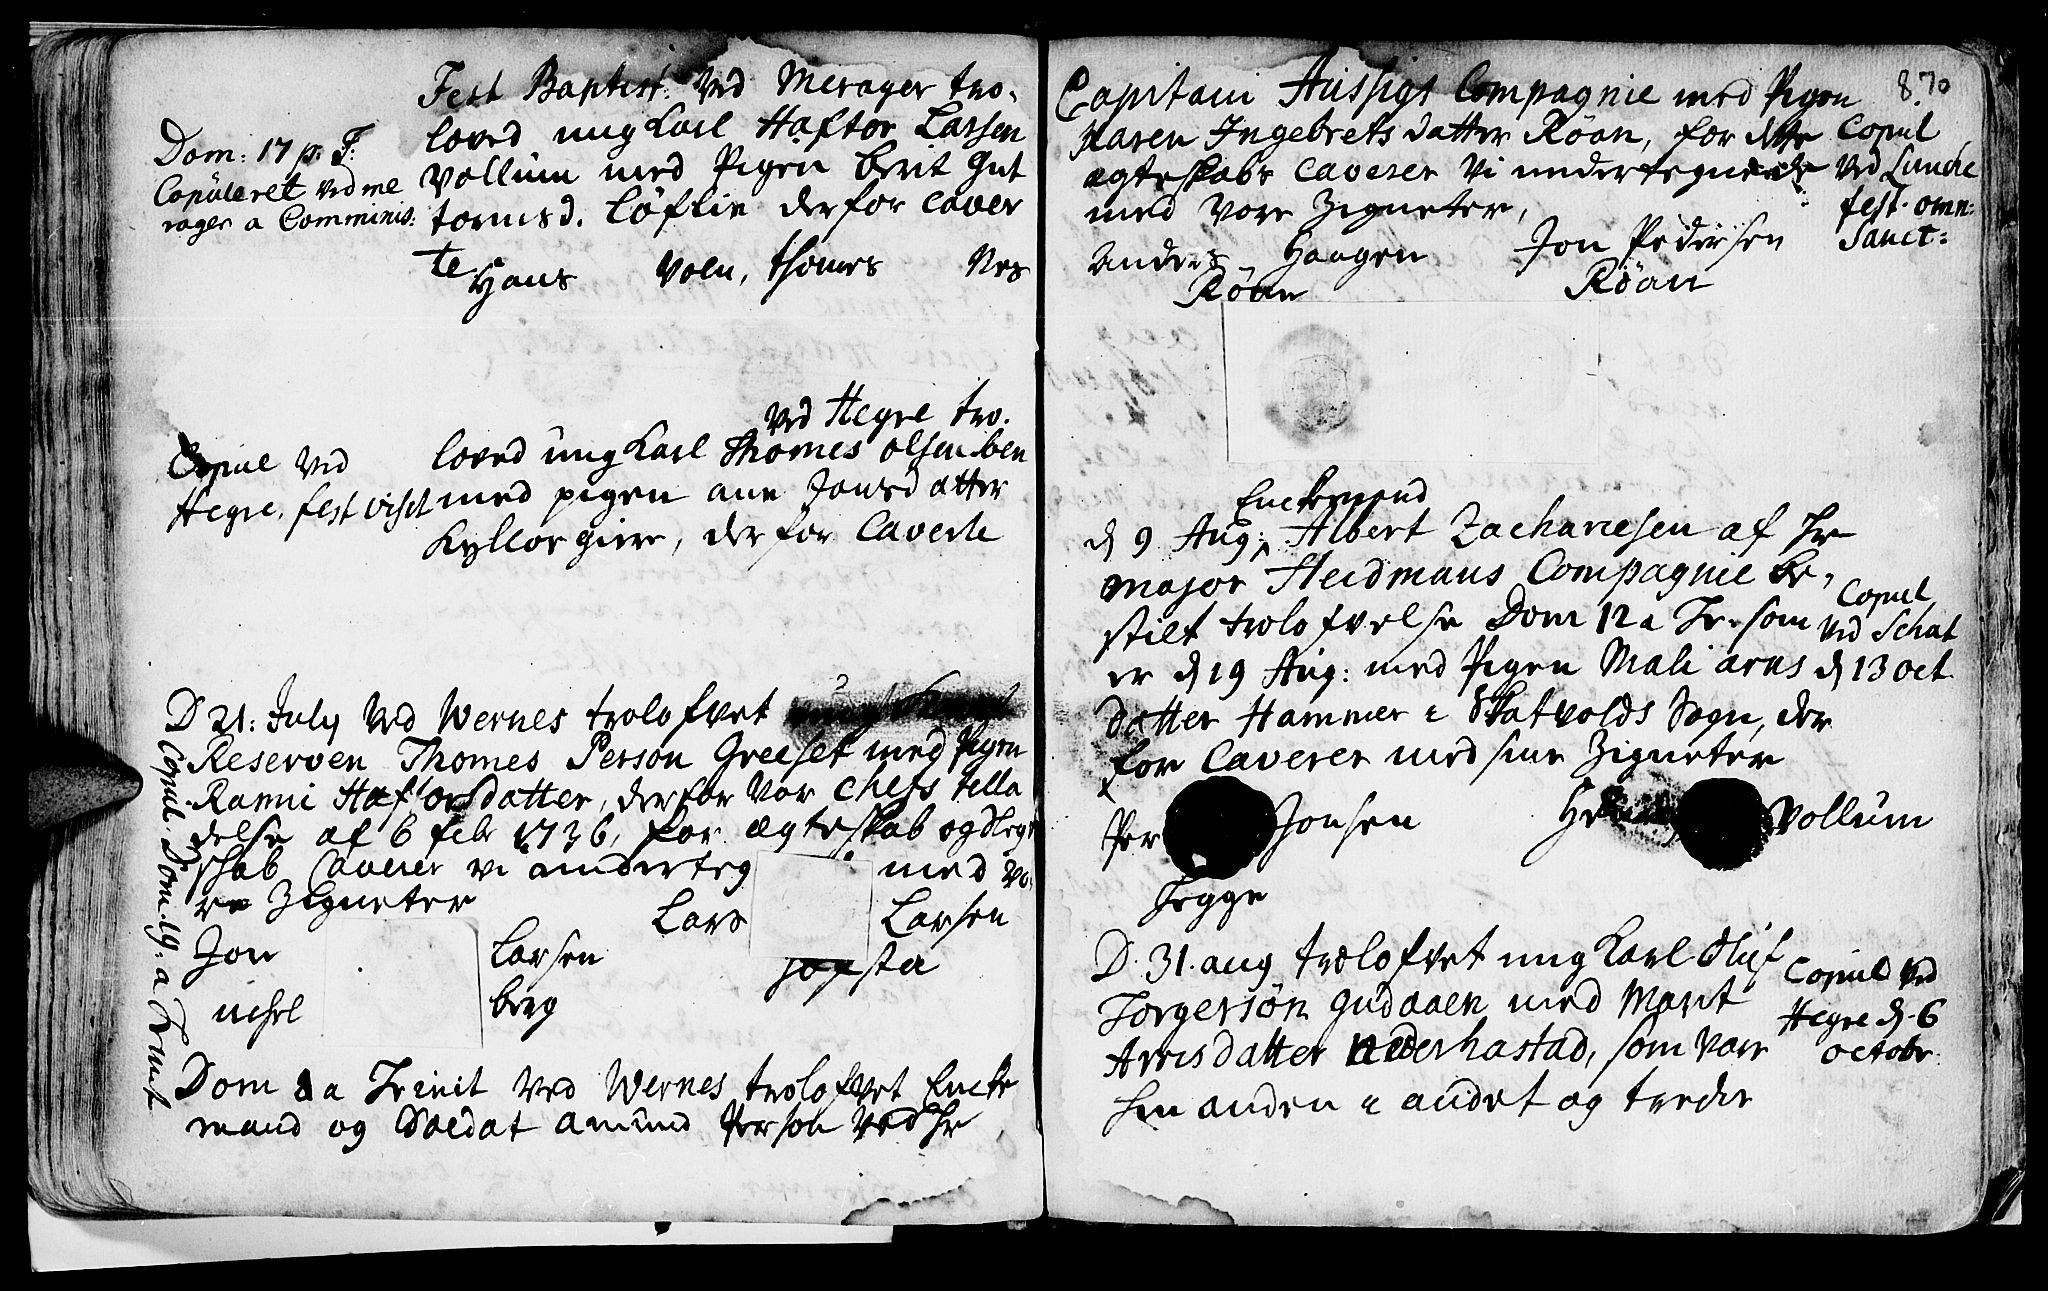 Fest Baptist: Ved Merager tro,
loved ung Karl Haftor Larsen
Vollum med Pigen Berit Gut
tormsd. Løflie derfor caver
te
Hans Voln, Thomes Nes
Dom: 17 p: T:
Copuleret ved me
rager a Comminis:
Ved Hegre tro.
loved ung Karl Thomes Olsen
med pigen ane Jonsdatter
Kyllor giere, derfor Caverte
Copul Ved
Hegre, fest visit
D 21: July Ved Wernes trolofvet
Reserven Thomes Person Greeset med Pigen
Ranni Haftorsdatter, derfor var Chefs tilla
delse af 6 febr 1736, for ægteskab og Slegt
skab Caverer vi underteg med vo,
re Zigneter
Jon Larsen Lars Larsen
berg
Copul. Dom. 19: a Trinit
Dom 8 a Trinit Ved Wernes trolofvet Encke
mand og Soldat Amund Person Ved Hr
870
Capitain Hussigs Compagnie med Pigen
Karen Ingebrets datter Røan, for dette
ægteskabs caverer Vi undertegnede
med Vore Zigneter,
Anders Haagen Jon Pedersen
Røan Røan
Copul
Ved Luncke
fest. omn:
Sanct:
Enckemand
d 9 Aug: Albert Zachariesen af Hr
Major Heidmans Compagnie be,
stilt trolofvelse Dom 12 a Tr. som
er d 19 Aug: med Pigen Mali arns
datter Hammer i Skatvolds Sogn, der
for Caverer med sine Zigneter
Per Jonsen Vollum
Tegge
Copul
Ved Schat
d 13 oct
D. 31. aug trolofvet ung Karl Oluf
Torgersøn Gudaaen med Marit
Arnsdatter nederhastad, som vare
hin anden i andet og tredie
Copul Ved
Hegre d. 6
octobr.